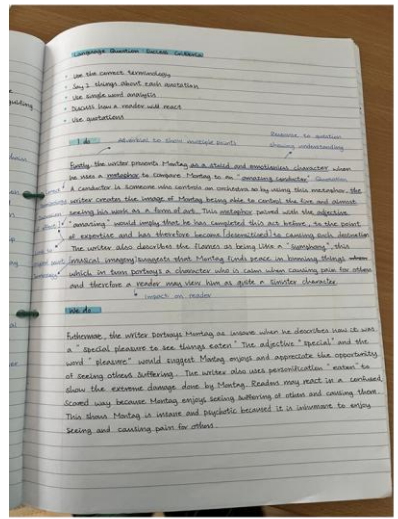 Language Question Success Criteria
• Use the correct terminology
• Say 2 things about each quotation
• Use single word analysis
• Discuss how a reader will react
• Use quotations
I do
Adverbial to show multiple points
Reference to question showing understanding
Firstly, the writer presents Montag as a stolid and emotionless character when
he uses a metaphor to compare Montag to an "amazing conductor" Quotation
A conductor is someone who controls an orchestra so by using this metaphor, the
writer creates the image of Montag being able to control the fire and almost
seeing his work as a form of art. This metaphor paired with the adjective
"amazing" would imply that he has completed this act before, to the point
of expertise and has therefore become desensitised to causing such destruction
The writer also describes the flames as being like a "symphony", this
(musical imagery) suggests that Montag finds peace in burning things
which in turn portrays a character who is calm when causing pain for others
and therefore a reader may view him as quite a sinister character.
Impact on reader
We do
Futhermore, the writer portrays Montag as insane when he describes how it was
a "special pleasure to see things eaten" The adjective "special" and the
word "pleasure" would suggest Montag enjoys and appreciate the opportunity
of seeing others suffering. The writer also uses personification "eaten" to
show the extreme damage done by Montag. Readers may react in a confused
scared way because Montag enjoys seeing suffering of others and causing there.
This shows Montag is insane and psychotic because it is inhumane to enjoy
seeing and causing pain for others.